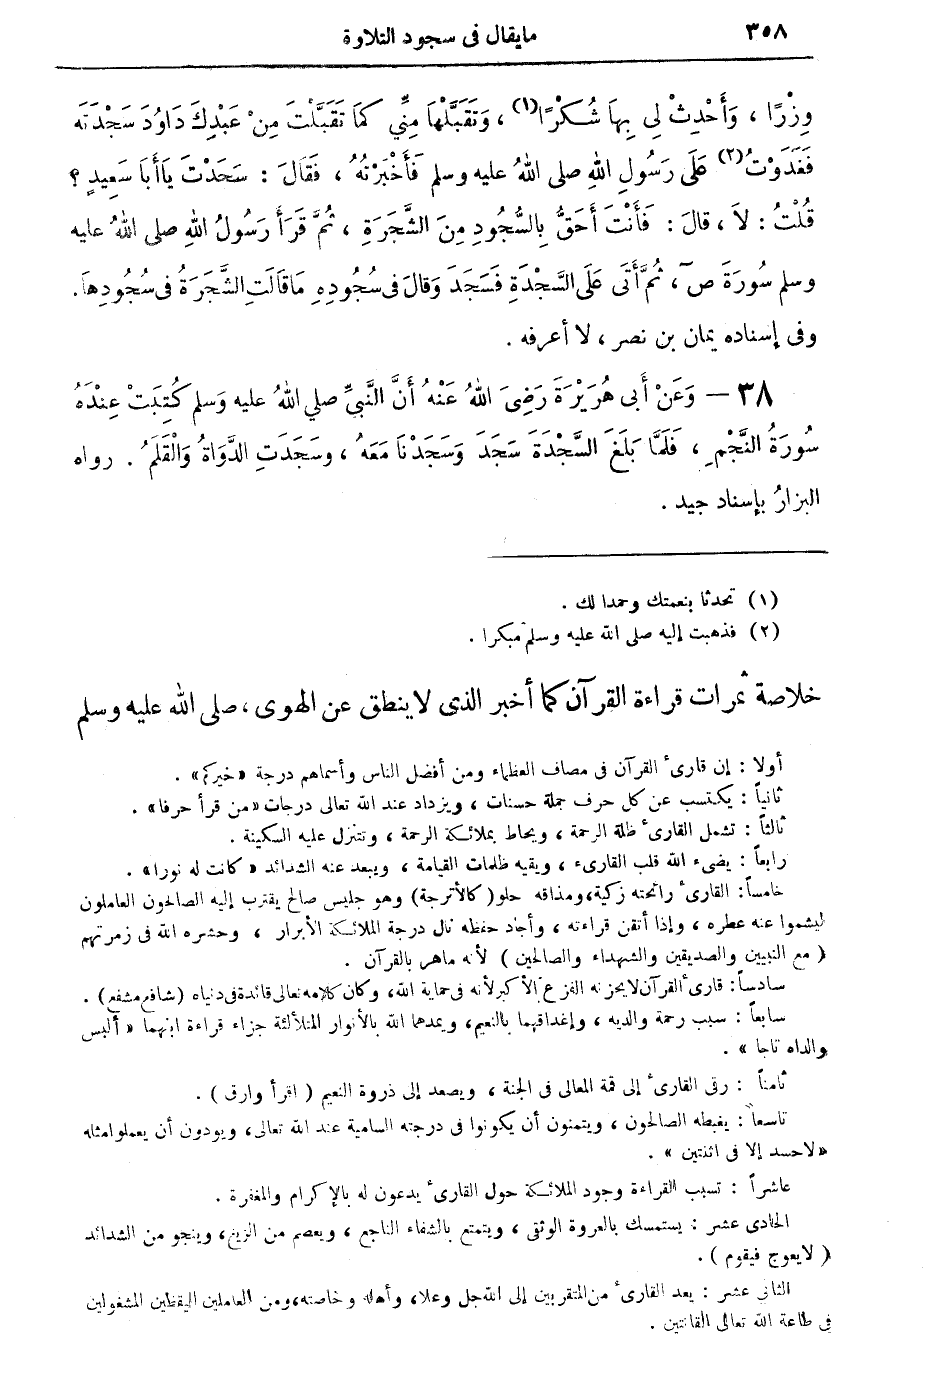 ٣٥٨
مايقال فى سجود التلاوة
وِزْرًا ، وَأَحْدِثْ لِى بِهَا شُكْرًا(١) ، وَتَقَبَّلْهَا مِنِّي كَمَا تَقَبَّلْتَ مِنْ عَبْدِكَ دَاوُدَ سَجْدَتَهُ
فَغَدَوْتُ(٢) عَلَى رَسُولِ اللهِ صلى اللهُ عليه وسلم فَأَخْبَرْتُهُ ، فَقَالَ : سَجَدْتَ يَاأَبَا سَعِيدٍ ؟
قُلْتُ : لاَ ، قالَ : فَأَنْتَ أَحَقُّ بِالسُّجُودِ مِنَ الشَّجَرَةِ ، ثُمَّ قَرَأَ رَسُولُ اللهِ صلى اللهُ عليه
وسلم سُورَةَ صۤ ، ثُمَّ أَتَى عَلَى السَّجْدَةِ فَسَجَدَ وَقالَ فى سُجُودِهِ مَاقَالَتِ الشَّجَرَةُ فى سُجُودِهَا.
وفى إسناده يمان بن نصر ، لا أعرفه .
٣٨ — وَعَنْ أَبى هُرَيْرَةَ رَضِىَ اللهُ عَنْهُ أَنَّ النَّبِىِّ صلي اللهُ عليه وَسلم كُتِبَتْ عِنْدَهُ
سُورَةُ النَّجْمِ ، فَلَمَّا بَلَغَ السَّجْدَةَ سَجَدَ وَسَجَدْنَا مَعَهُ ، وسَجَدَتِ الدَّوَاةُ وَالْقَلَمُ . رواه
البزارُ بإسناد جيد .
(١) تحدثا بنعمتك وحمدا لك .
(٢) فذهبت إليه صلى الله عليه وسلم مبكرا .
خلاصة ثمرات قراءة القرآن كما أخبر الذى لاينطق عن الهوى ، صلى الله عليه وسلم
أولا : إن قارىء القرآن فى مصاف العظماء ومن أفضل الناس وأسماهم درجة «خيركم» .
ثانياً : يكتسب عن كل حرف جملة حسنات ، ويزداد عند الله تعالى درجات «من قرأ حرفا» .
ثالثاً : تشمل القارىء ظلة الرحمة ، ويحاط بملائكة الرحمة ، وتتنزل عليه السكينة .
رابعاً : يضىء الله قلب القارىء ، ويقيه ظلمات القيامة ، ويبعد عنه الشدائد « كانت له نورا» .
خامساً: القارىء رائحته زكية، ومذاقه حلو (كالأترجة) وهو جليس صالح يقترب إليه الصالحون العاملون
ليشموا عنه عطره ، وإذا أتقن قراءته ، وأجاد حفظه نال درجة الملائكة الأبرار ، وحشره الله فى زمرتهم
( مع النبيين والصديقين والشهداء والصالحين ) لأنه ماهر بالقرآن .
سادساً: قارىء القرآن لايحزنه الفزع الأكبر لأنه فى حماية الله، وكان كلامه تعالى قائدة فى دنياه (شافع مشفع) .
سابعاً : سبب رحمة والديه ، وإغداقهما بالنعيم، ويمدهما الله بالأنوار المتلألئة جزاء قراءة ابنهما « ألبس
والداه تاجا » .
ثامناً : رقى القارىء إلى قمة المعالى فى الجنة ، ويصعد إلى ذروة النعيم ( اقرأ وارق ) .
تاسعاً : يغبطه الصالحون ، ويتمنون أن يكونوا فى درجته السامية عند الله تعالى، ويودون أن يعملوا مثله
«لاحسد إلا فى اثنتين » .
عاشراً : تسبب القراءة وجود الملائكة حول القارىء يدعون له بالإكرام والمغفرة .
الحادى عشر : يستمسك بالعروة الوثقى ، ويتمتع بالشفاء الناجع ، ويعصم من الزيغ، وينجو من الشدائد
( لايعوج فيقوم ) .
الثانى عشر : يعد القارىء من المتقربين إلى الله جل وعلا، وأهله وخاصته، ومن العاملين اليقظين المشغولين
فى طاعة الله تعالى القانتين .